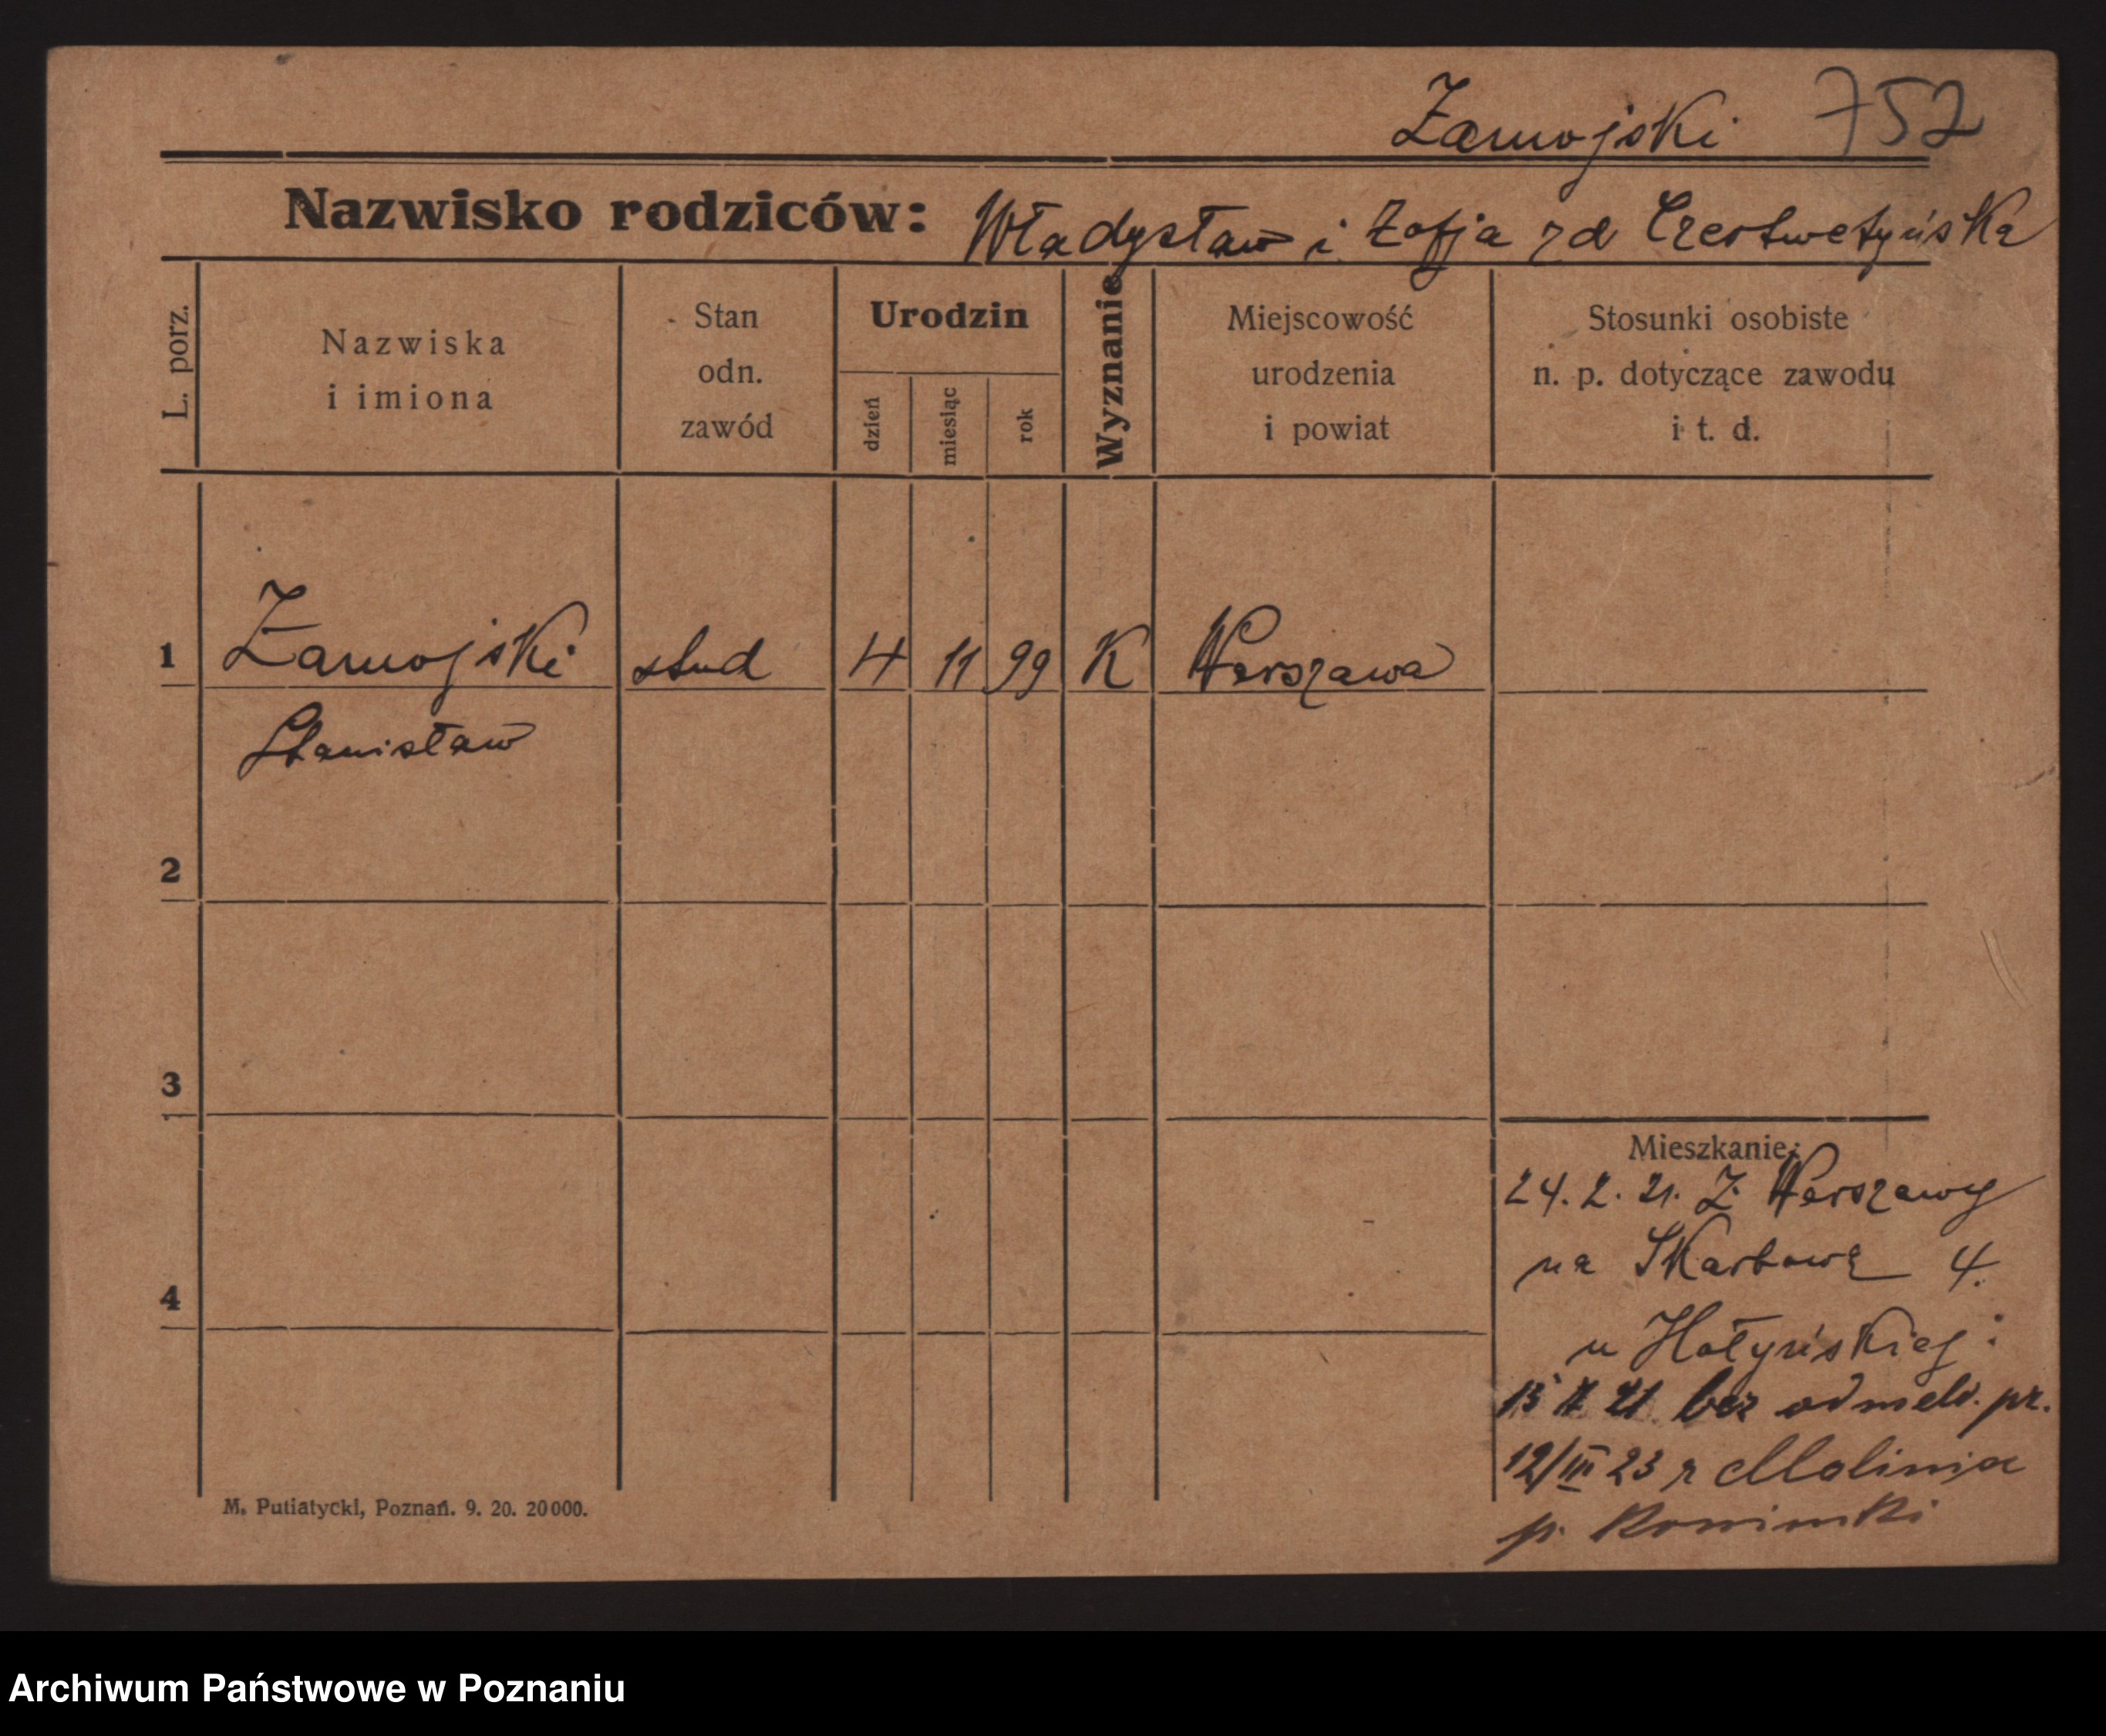 Zamojski 752
Nazwisko rodziców: Władysław i Zofja zd Czestwetyńska
L. porz.
Nazwiska
i imiona
Stan
odn.
zawód
Urodzin
dzień
miesiąc
rok
Wyznanie
Miejscowość
urodzenia
i powiat
Stosunki osobiste
n. p. dotyczące zawodu
i t. d.
1 Zamojski stud 4 11 99 K Warszawa
Stanisław
2
3
4
Mieszkanie:
24. 2. 21. Z Warszawy
na Skarbową 4.
u Hołyńskiej
21 bez odmeld. pr.
12/III 23 z Malinia
p.
M. Putiatycki, Poznań. 9. 20. 20000.
Archiwum Państwowe w Poznaniu